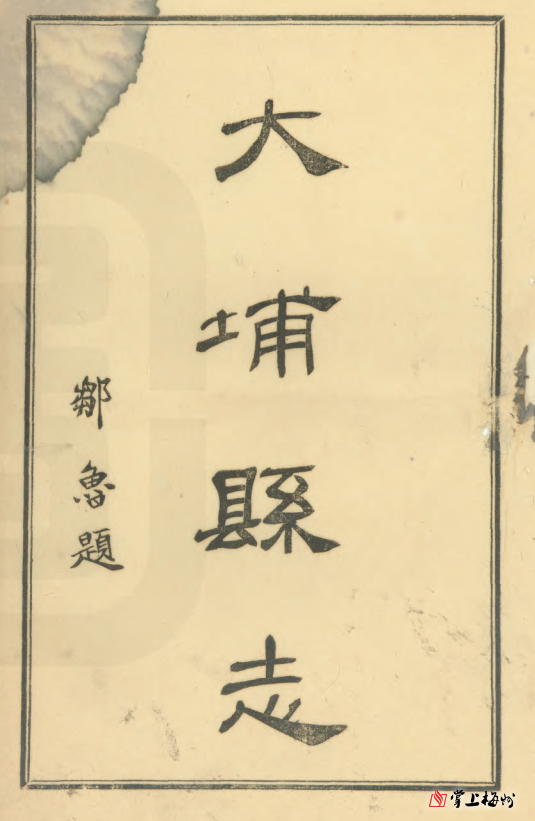 大埔縣志
鄒魯題
掌上梅州